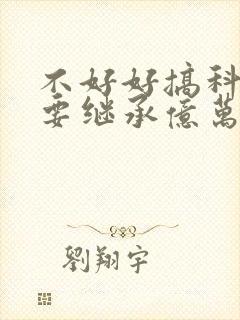 不好好搞科
要继承億萬
劉翔宇